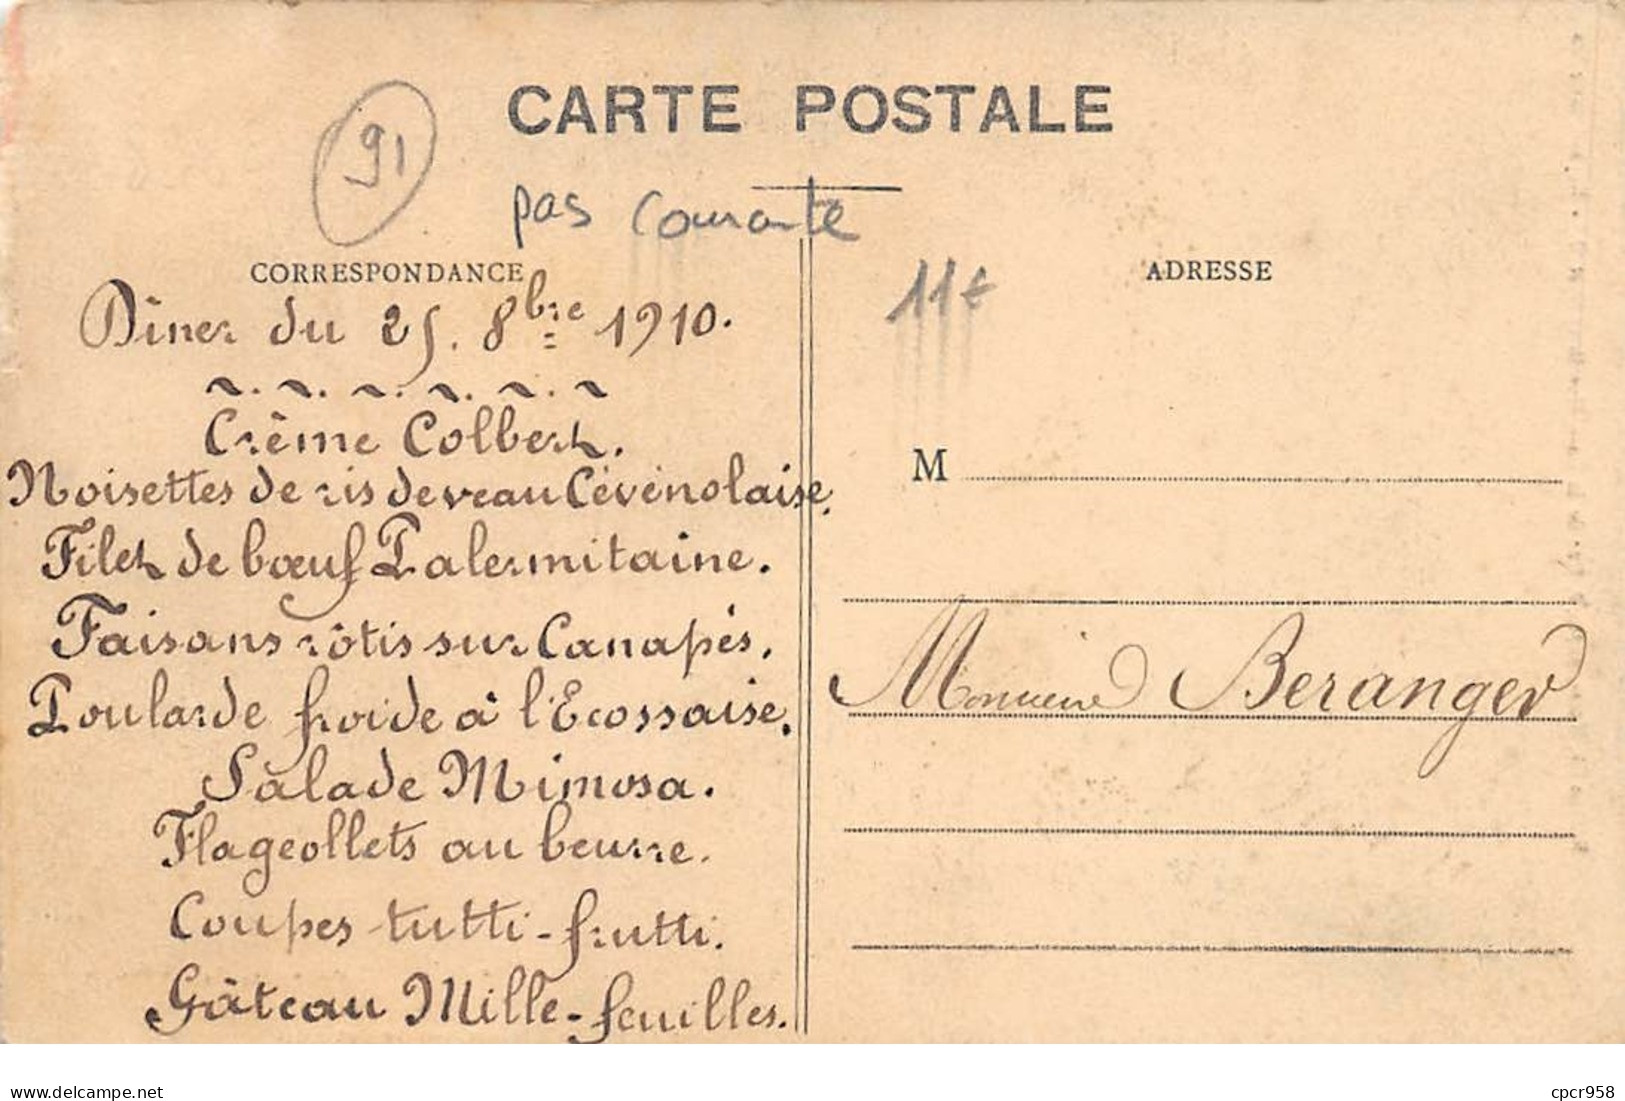 CARTE POSTALE
91
pas courante
CORRESPONDANCE
Dîner du 25. 8bre 1910.
Crème Colbert.
Noisettes de ris de veau Cévenolaise.
Filet de bœuf Palermitaine.
Faisans rôtis sur Canapés.
Poularde froide à l'Ecossaise.
Salade Mimosa.
Flageollets au beurre.
Coupes tutti-frutti.
Gâteau Mille-feuilles.
11€
ADRESSE
M
Monsieur Beranger
delcampe.net
cpcr958